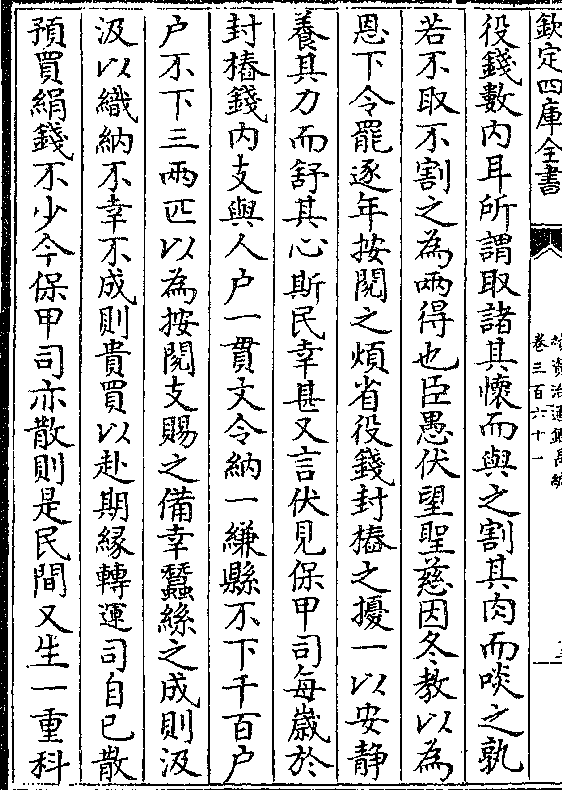 欽定四庫全書
續資治通鑑長編
卷三百六十一
役錢數内耳所謂取諸其懷而與之割其肉而啖之孰
若不取不割之為兩得也臣愚伏望聖慈因冬教以為
恩下令罷逐年按閲之煩省役錢封樁之擾一以安静
養其力而舒其心斯民幸甚又言伏見保甲司每歲於
封樁錢内支與人户一貫文令納一縑縣不下千百户
户不下三兩匹以為按閲支賜之備幸蠶絲之成則汲
汲以織納不幸不成則貴買以赴期縁轉運司自已散
預買絹錢不少今保甲司亦散則是民間又生一重科